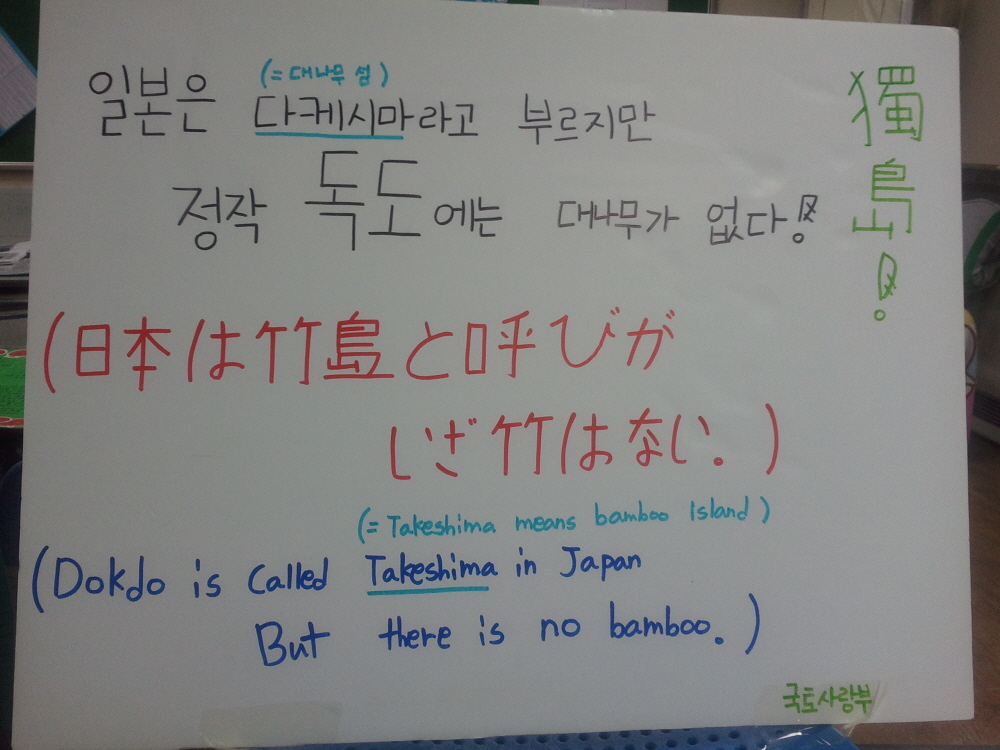 (=대나무 섬)
일본은 다케시마라고 부르지만
정작 독도에는 대나무가 없다!
獨島!
(日本は竹島と呼びが
いざ竹はない.)
(=Takeshima means bamboo Island)
(Dokdo is called Takeshima in Japan
But there is no bamboo.)
국토사랑부